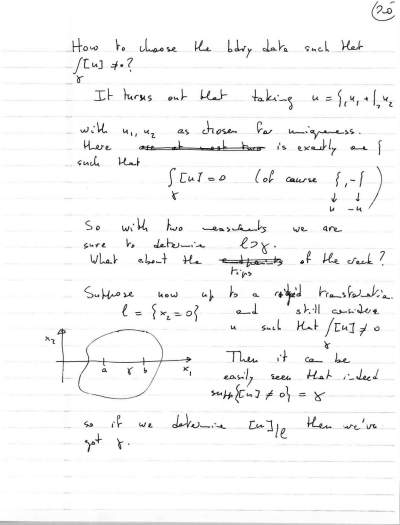 20
How to choose the bdry data such that
∫_γ [u] ≠ 0?
It turns out that taking u = ξ₁u₁ + ξ₂u₂
with u₁, u₂ as chosen for uniqueness.
there is exactly one ξ
such that
∫_γ [u] = 0 (of course ξ, -ξ)
↓ ↓
u -u
So with two measurements we are
sure to determine l ⊃ γ.
What about the tips of the crack?
Suppose now up to a rigid transformation
l = {x₂ = 0} and still consider
u such that ∫_γ [u] ≠ 0
x₂
a γ b x₁
Then it can be
easily seen that indeed
supp{[u] ≠ 0} = γ
so if we determine [u]|_l then we've
got γ.